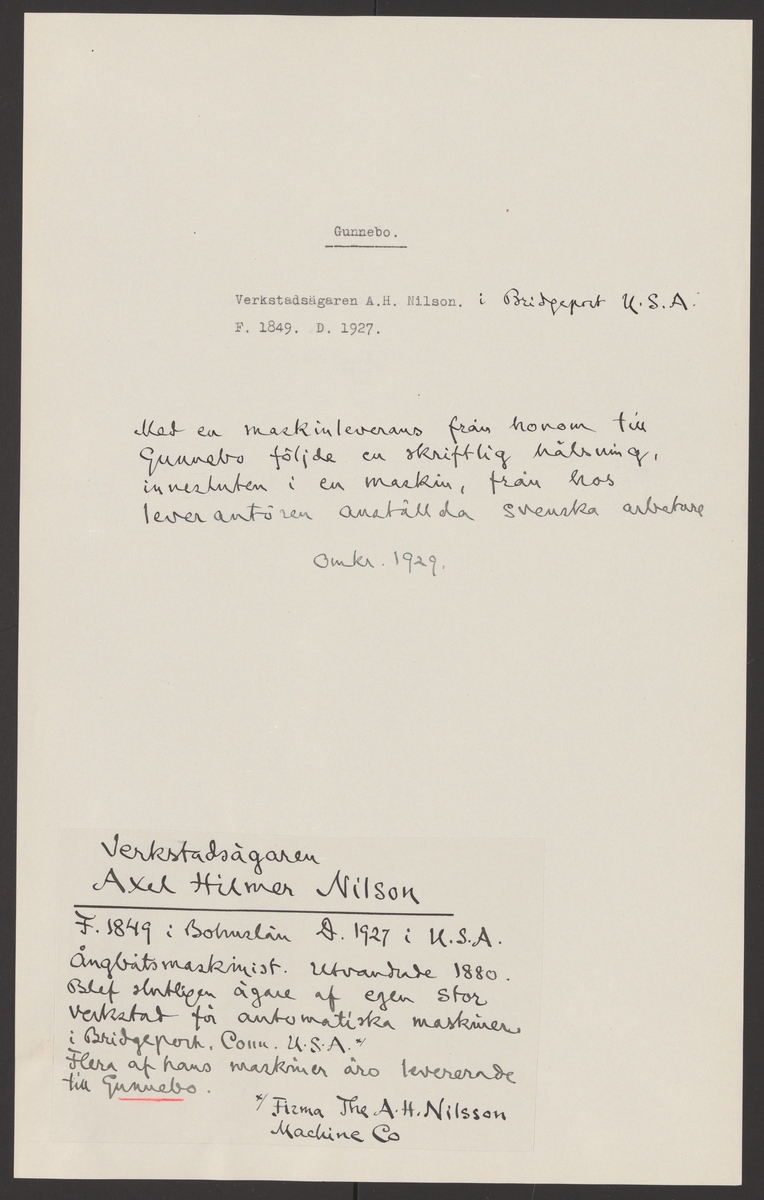 Gunnebo.
Verkstadsägaren A.H. Nilson. i Bridgeport U.S.A.
F. 1849. D. 1927.
Med en maskinleverans från honom till
Gunnebo följde en skriftlig hälsning,
innesluten i en maskin, från hos
leverantören anställda svenska arbetare
Omkr. 1929.
Verkstadsägaren
Axel Hilmer Nilson
F. 1849 i Bohuslän D. 1927 i U.S.A.
Ångbåtsmaskinist. Utvandrade 1880.
Blef slutligen ägare af egen stor
verkstad för automatiska maskiner
i Bridgeport, Conn. U.S.A.*/
Flera af hans maskiner äro levererade
till Gunnebo.
*/ Firma The A.H. Nilsson
Machine Co